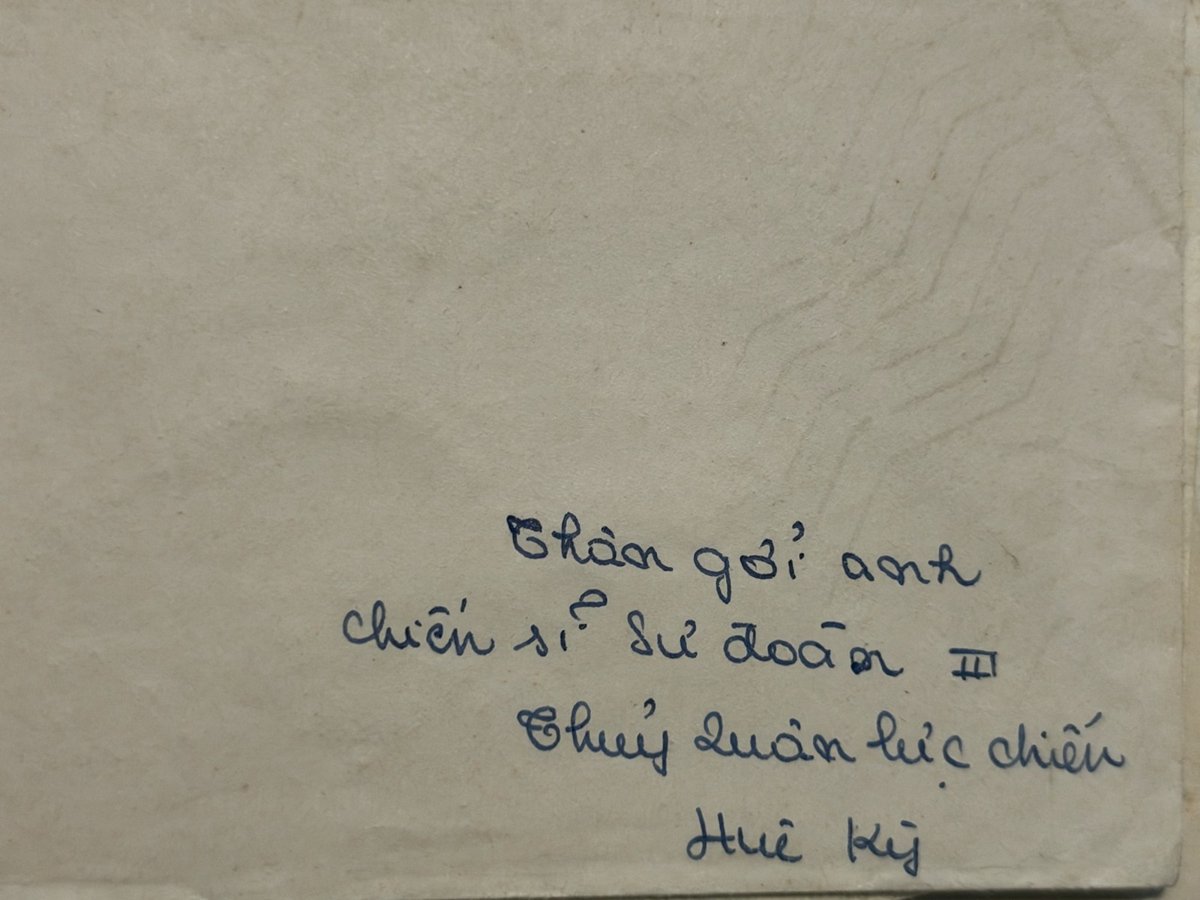 Thân gởi anh
chiến sỉ Sư đoàn III
Thủy Quân lực chiến
Huê Kỳ